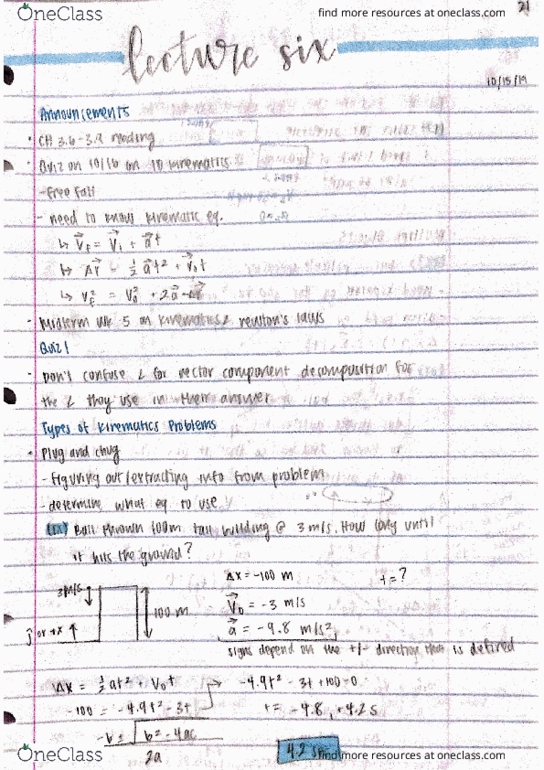 OneClass
find more resources at oneclass.com
21
lecture six
10/15/19
Announcements
• CH 3.6-3.9 reading
• Quiz on 10/16 on 1D kinematics
- free fall
- need to know kinematic eq.
↳ v⃗f = v⃗i + a⃗t
↳ Δr⃗ = ½ a⃗t² + v⃗₀t
↳ vf² = v₀² + 2a⃗
• Midterm wk 5 on kinematics & newton's laws
Quiz 1
• Don't confuse ∠ for vector component decomposition for
the ∠ they use in their answer
Types of Kinematics Problems
• Plug and chug
- figuring out/extracting info from problem
- determine what eq to use
Ball thrown 100m tall building @ 3 m/s. How long until
it hits the ground?
3m/s
100 m
ĵ or +x ↑
Δx = -100 m
t = ?
v⃗₀ = -3 m/s
a⃗ = -9.8 m/s²
signs depend on the +/- direction that is defined
Δx = ½at² + v₀t
-4.9t² - 3t + 100 = 0
-100 = -4.9t² - 3t
t = -4.8, +4.2 s
-b ± √b² - 4ac
2a
4.2 s
OneClass
find more resources at oneclass.com